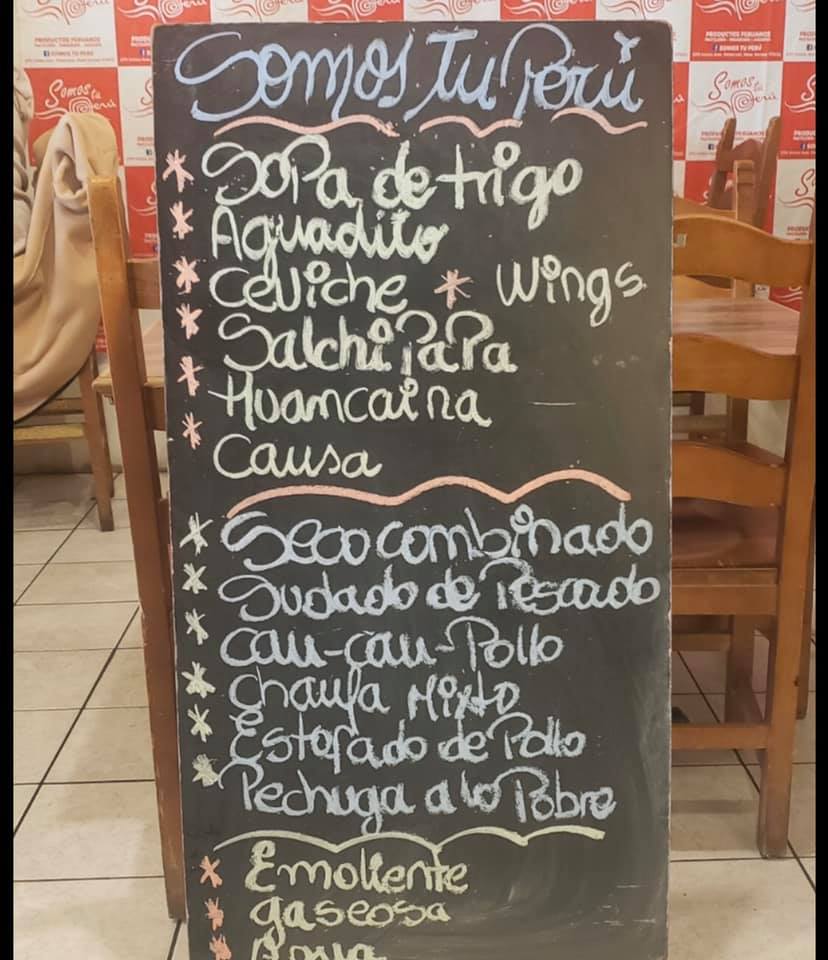 Somos Tu Perú
* Sopa de trigo
* Aguadito
* Ceviche * Wings
* SalchiPaPa
* Huancaina
* Causa
* Seco combinado
* Sudado de Pescado
* Cau-cau-Pollo
* chaufa Mixto
* Estofado de Pollo
* Pechuga a lo Pobre
* Emoliente
* gaseosa
* Agua
Somos tu Perú
PRODUCTOS PERUANOS
SOMOS TU PERÚ